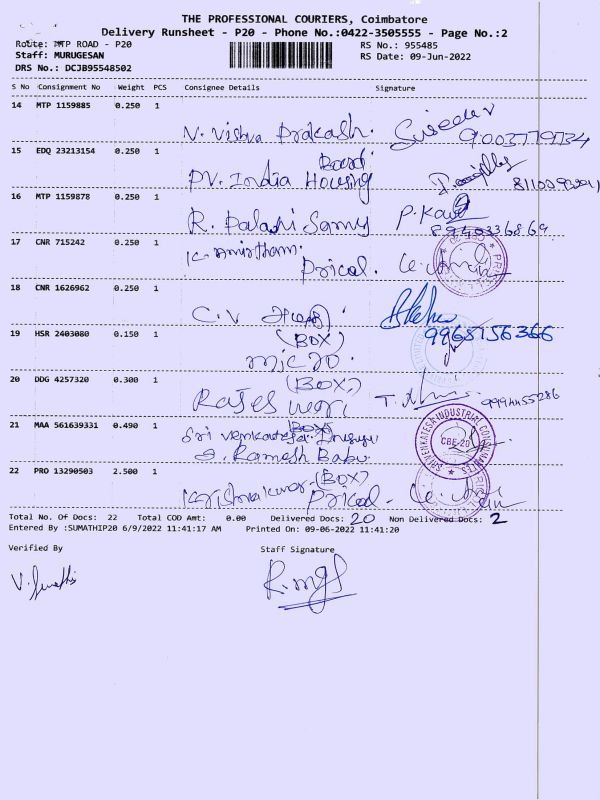 THE PROFESSIONAL COURIERS, Coimbatore
Delivery Runsheet - P20 - Phone No.:0422-3505555 - Page No.:2
Route: MTP ROAD - P20
RS No.: 955485
Staff: MURUGESAN
RS Date: 09-Jun-2022
DRS No.: DCJB95548502
S No Consignment No Weight PCS Consignee Details Signature
14 MTP 1159885 0.250 1
N. Vishva Prakash.
15 EDQ 23213154 0.250 1
PV. India Housing
16 MTP 1159878 0.250 1
R. Palani Samy
17 CNR 715242 0.250 1
K. Amirtham.
Pricol.
18 CNR 1626962 0.250 1
C. V
9968756366
19 HSR 2403080 0.150 1
(BOX)
micro.
20 DDG 4257320 0.300 1
(BOX)
Rajeswari
21 MAA 561639331 0.490 1
(BOX)
Sri Venkatesa
Ramesh Babu
SRI VENKATESA INDUSTRIAL
CBE-20
22 PRO 13290503 2.500 1
(BOX)
Krishnakumar. Pricol.
Total No. Of Docs: 22 Total COD Amt: 0.00 Delivered Docs: 20 Non Delivered Docs: 2
Entered By :SUMATHIP20 6/9/2022 11:41:17 AM Printed On: 09-06-2022 11:41:20
Verified By Staff Signature